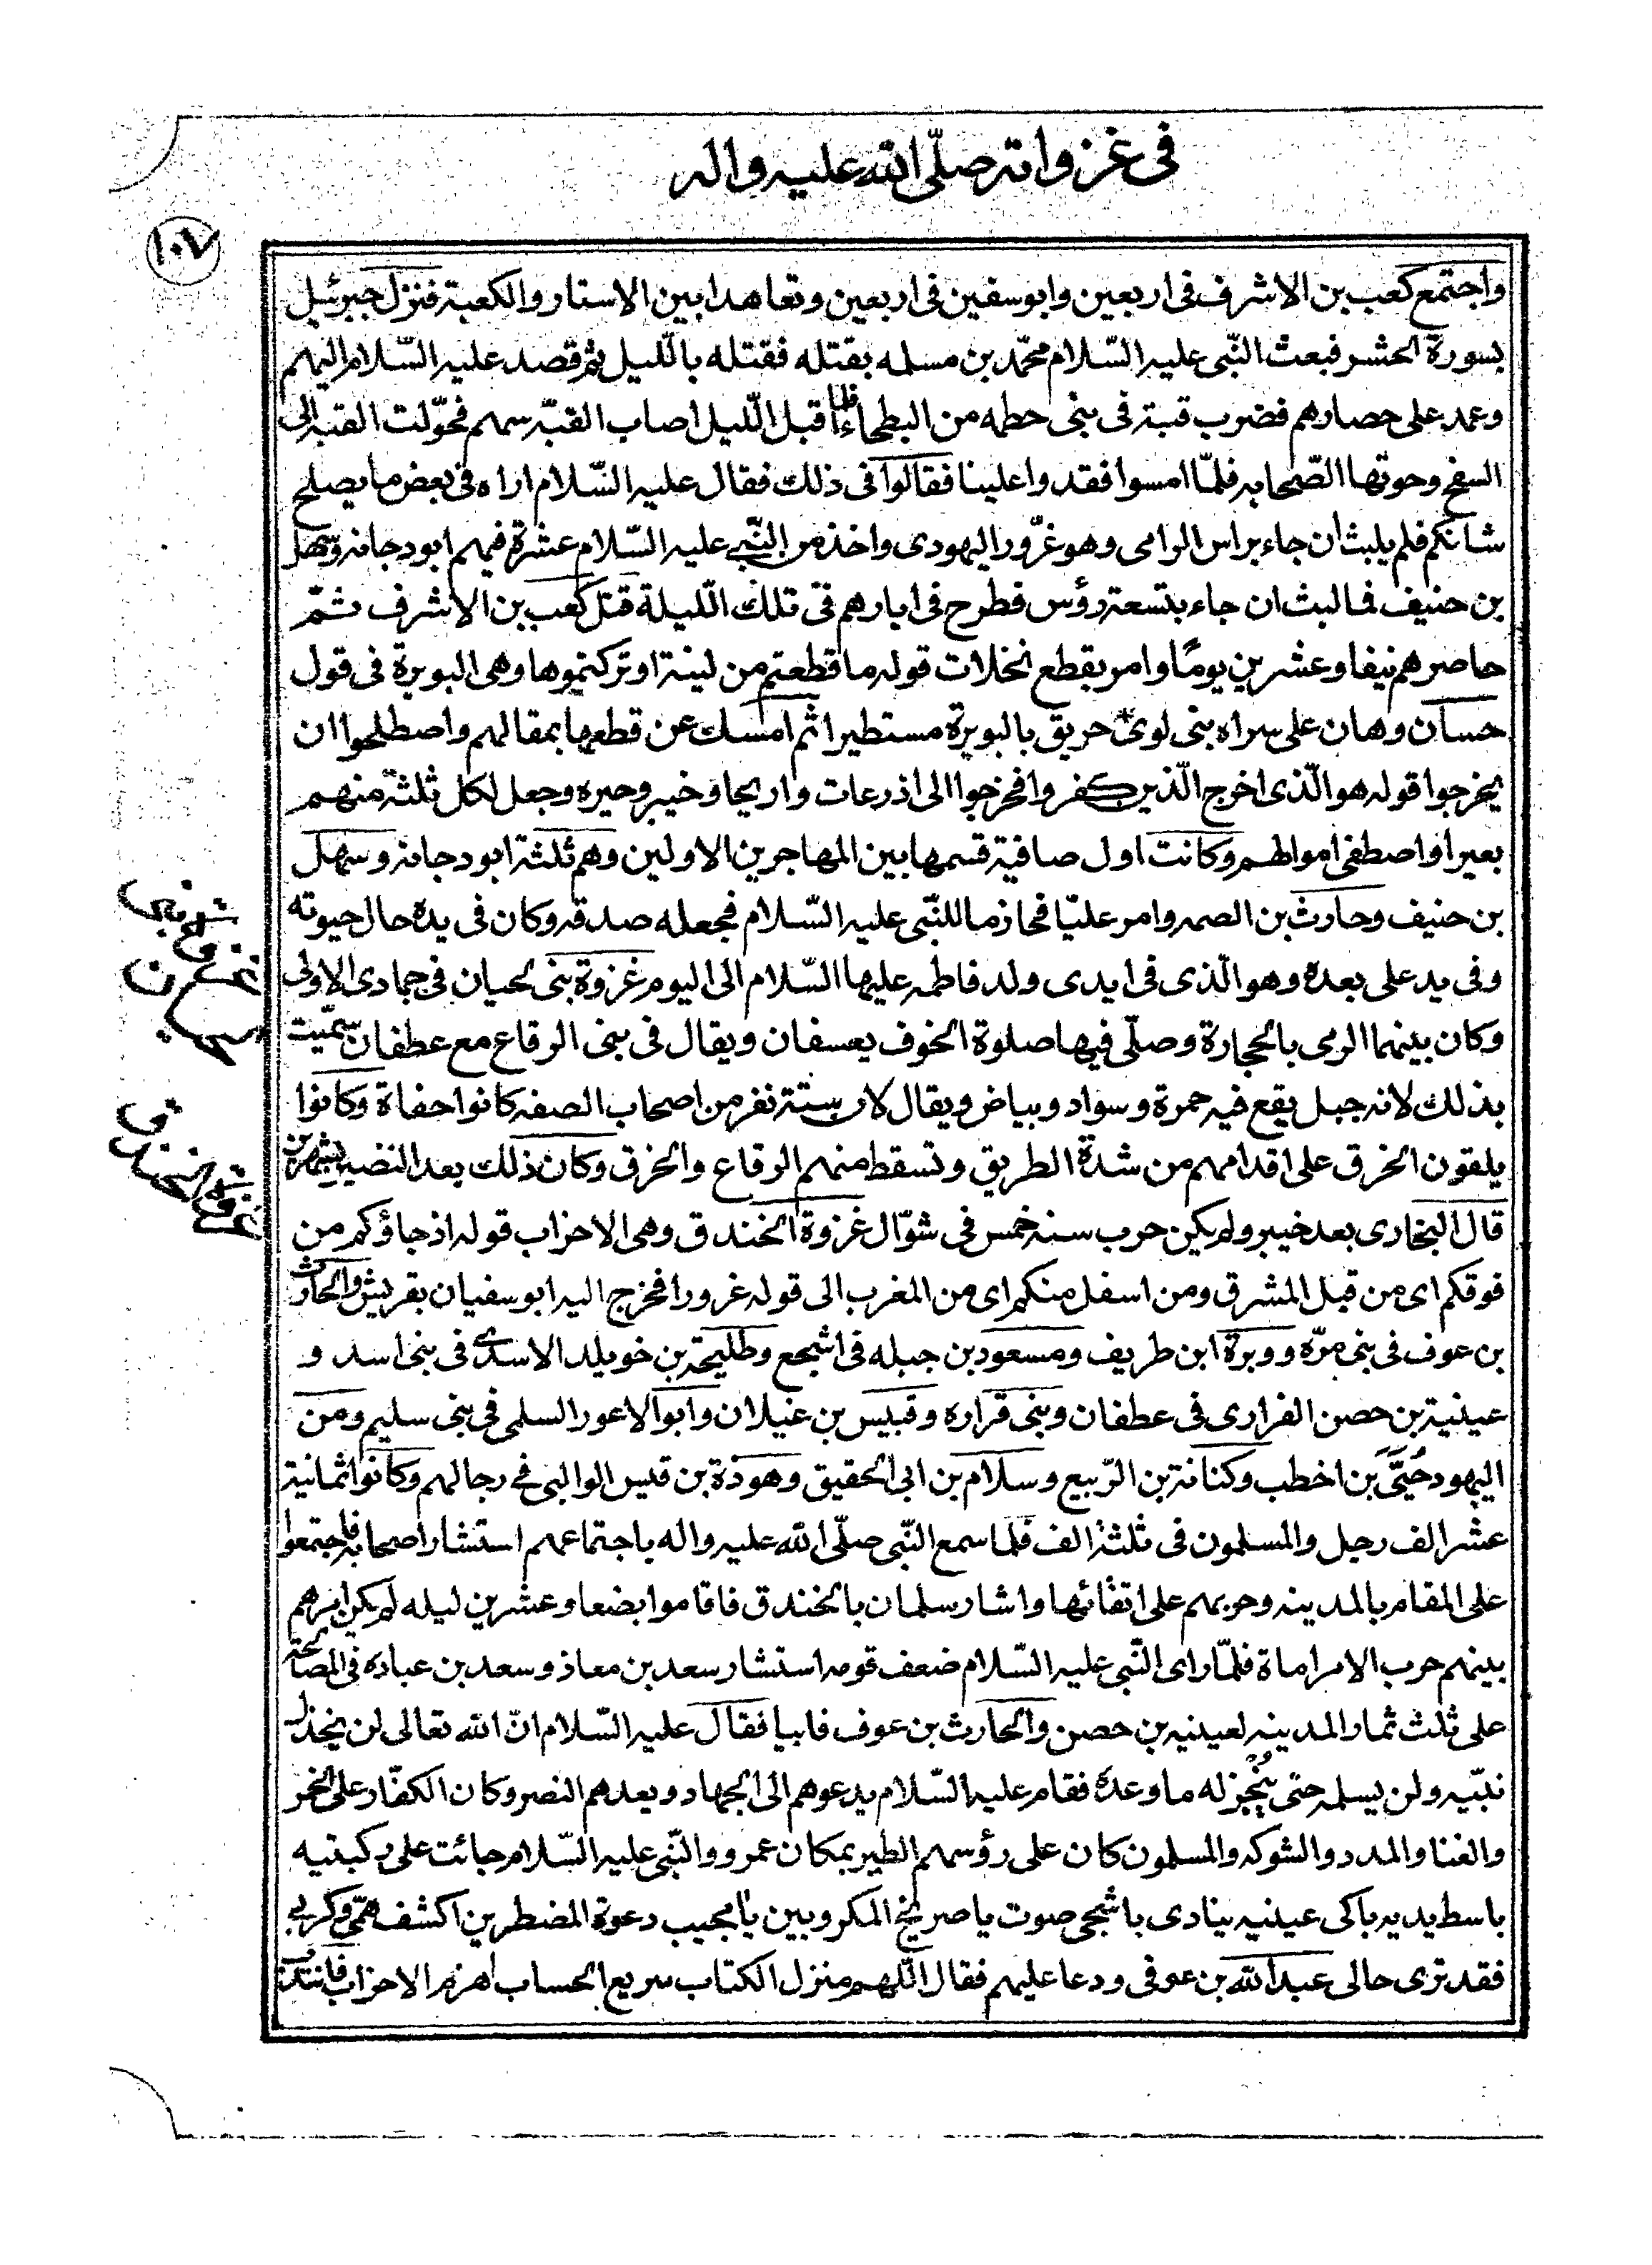 فى غزواته صلّى الله عليه واله
١٠٧
واجتمع كعب بن الاشرف فى اربعين وابوسفين فى اربعين وتعاهدا بين الاستار والكعبة فنزل جبرئيل
بسورة الحشر فبعث النّبى عليه السّلام محمّد بن مسلمه بقتله فقتله باللّيل ثم قصد عليه السّلام اليهم
وعمد على حصارهم فضرب قبة فى بنى حطمه من البطحاء فلما اقبل اللّيل اصاب القبّه سهم فحوّلت القبة الى
السفح وحوتها الصّحابه فلمّا امسوا فقدوا علينا فقالوا فى ذلك فقال عليه السّلام اراه فى بعض ما يصلح
شانكم فلم يلبث ان جاء براس الرامى وهو غرّور اليهودى واخذ من النّبى عليه السّلام عشرة فيهم ابودجانه وسهل
بن حنيف فما لبث ان جاء بتسعة رؤس فطرح فى ابارهم فى تلك اللّيلة قتل كعب بن الاشرف ثمّ
حاصرهم نيفا وعشرين يومًا وامر بقطع نخلات قوله ما قطعتم من لينة او تركتموها وهى البويرة فى قول
حسان وهان على سراه بنى لوى * حريق بالبويرة مستطيرا ثم امسك عن قطعها بمقالهم واصطلحوا ان
يخرجوا قوله هو الّذى اخرج الّذين كفروا فخرجوا الى اذرعات واريحا وخيبر وحيره وجعل لكل ثلثة منهم
بعيرا واصطفى اموالهم وكانت اول صافية قسمها بين المهاجرين الاولين وهم ثلثة ابودجانه وسهل
بن حنيف وحارث بن الصمه وامر عليّا فحاز ما للنّبى عليه السّلام فجعله صدقه وكان فى يده حال حيوته
وفى يد على بعده وهو الّذى فى ايدى ولد فاطمه عليها السّلام الى اليوم غزوة بنى لحيان فى جمادى الاولى
وكان بينهما الرمى بالحجارة وصلّى فيها صلوة الخوف بعسفان ويقال فى بنى الرقاع مع عطفان سمّيت
بذلك لانه جبل يقع فيه حمرة وسواد وبياض ويقال لان ستة نفر من اصحاب الصفه كانوا حفاة وكانوا
يلقون الخرق على اقدامهم من شدة الطريق وتسقط منهم الرقاع والخرق وكان ذلك بعد النضير بشهرين
قال البخارى بعد خيبر ولم يكن حرب سنه خمس فى شوّال غزوة الخندق وهى الاحزاب قوله اذ جاؤكم من
فوقكم اى من قبل المشرق ومن اسفل منكم اى من المغرب الى قوله غرورا فخرج اليه ابوسفيان بقريش والحارث
بن عوف فى بنى مرّه ووبرة ابن طريف ومسعود بن جبله فى اشجع وطليحة بن خويلد الاسدى فى بنى اسد و
عينية بن حصن الفرارى فى عطفان وبنى قراره وقبيس بن غيلان وابو الاعور السلمى فى بنى سليم ومن
اليهود حُيَىَّ بن اخطب وكنانة بن الرّبيع وسلام بن ابى الحقيق وهوذة بن قيس الوالبى فى رجالهم وكانوا ثمانية
عشر الف رجل والمسلمون فى ثلثة الف فلما سمع النّبى صلّى الله عليه واله باجتماعهم استشار اصحابه فاجتمعوا
على المقام بالمدينه وحربهم على اتفائها واشار سلمان بالخندق فاقاموا بضعا وعشرين ليله لم يكن امرهم
بينهم حرب الا مراماة فلمّا راى النّبى عليه السّلام ضعف قومه استشار سعد بن معاذ وسعد بن عباده فى المصالحة
على ثلث ثمار المدينه لعينيه بن حصن والحارث بن عوف فابيا فقال عليه السّلام انّ الله تعالى لن يخذل
نبّيه ولن يسلمه حتى ينجز له ما وعده فقام عليه السّلام يدعوهم الى الجهاد ويعدهم النصر وكان الكفّار على الخمر
والغنا والمدد والشوكه والمسلمون كان على رؤسهم الطير بمكان عمرو والنّبى عليه السّلام جائث على ركبتيه
باسط يديه باكى عينيه ينادى باشجى صوت يا صريخ المكروبين يا مجيب دعوة المضطرين اكشف همّى وكربى
فقد ترى حالى عبد الله بن عوفى ودعا عليهم فقال اللّهم منزل الكتاب سريع الحساب اهزم الاحزاب